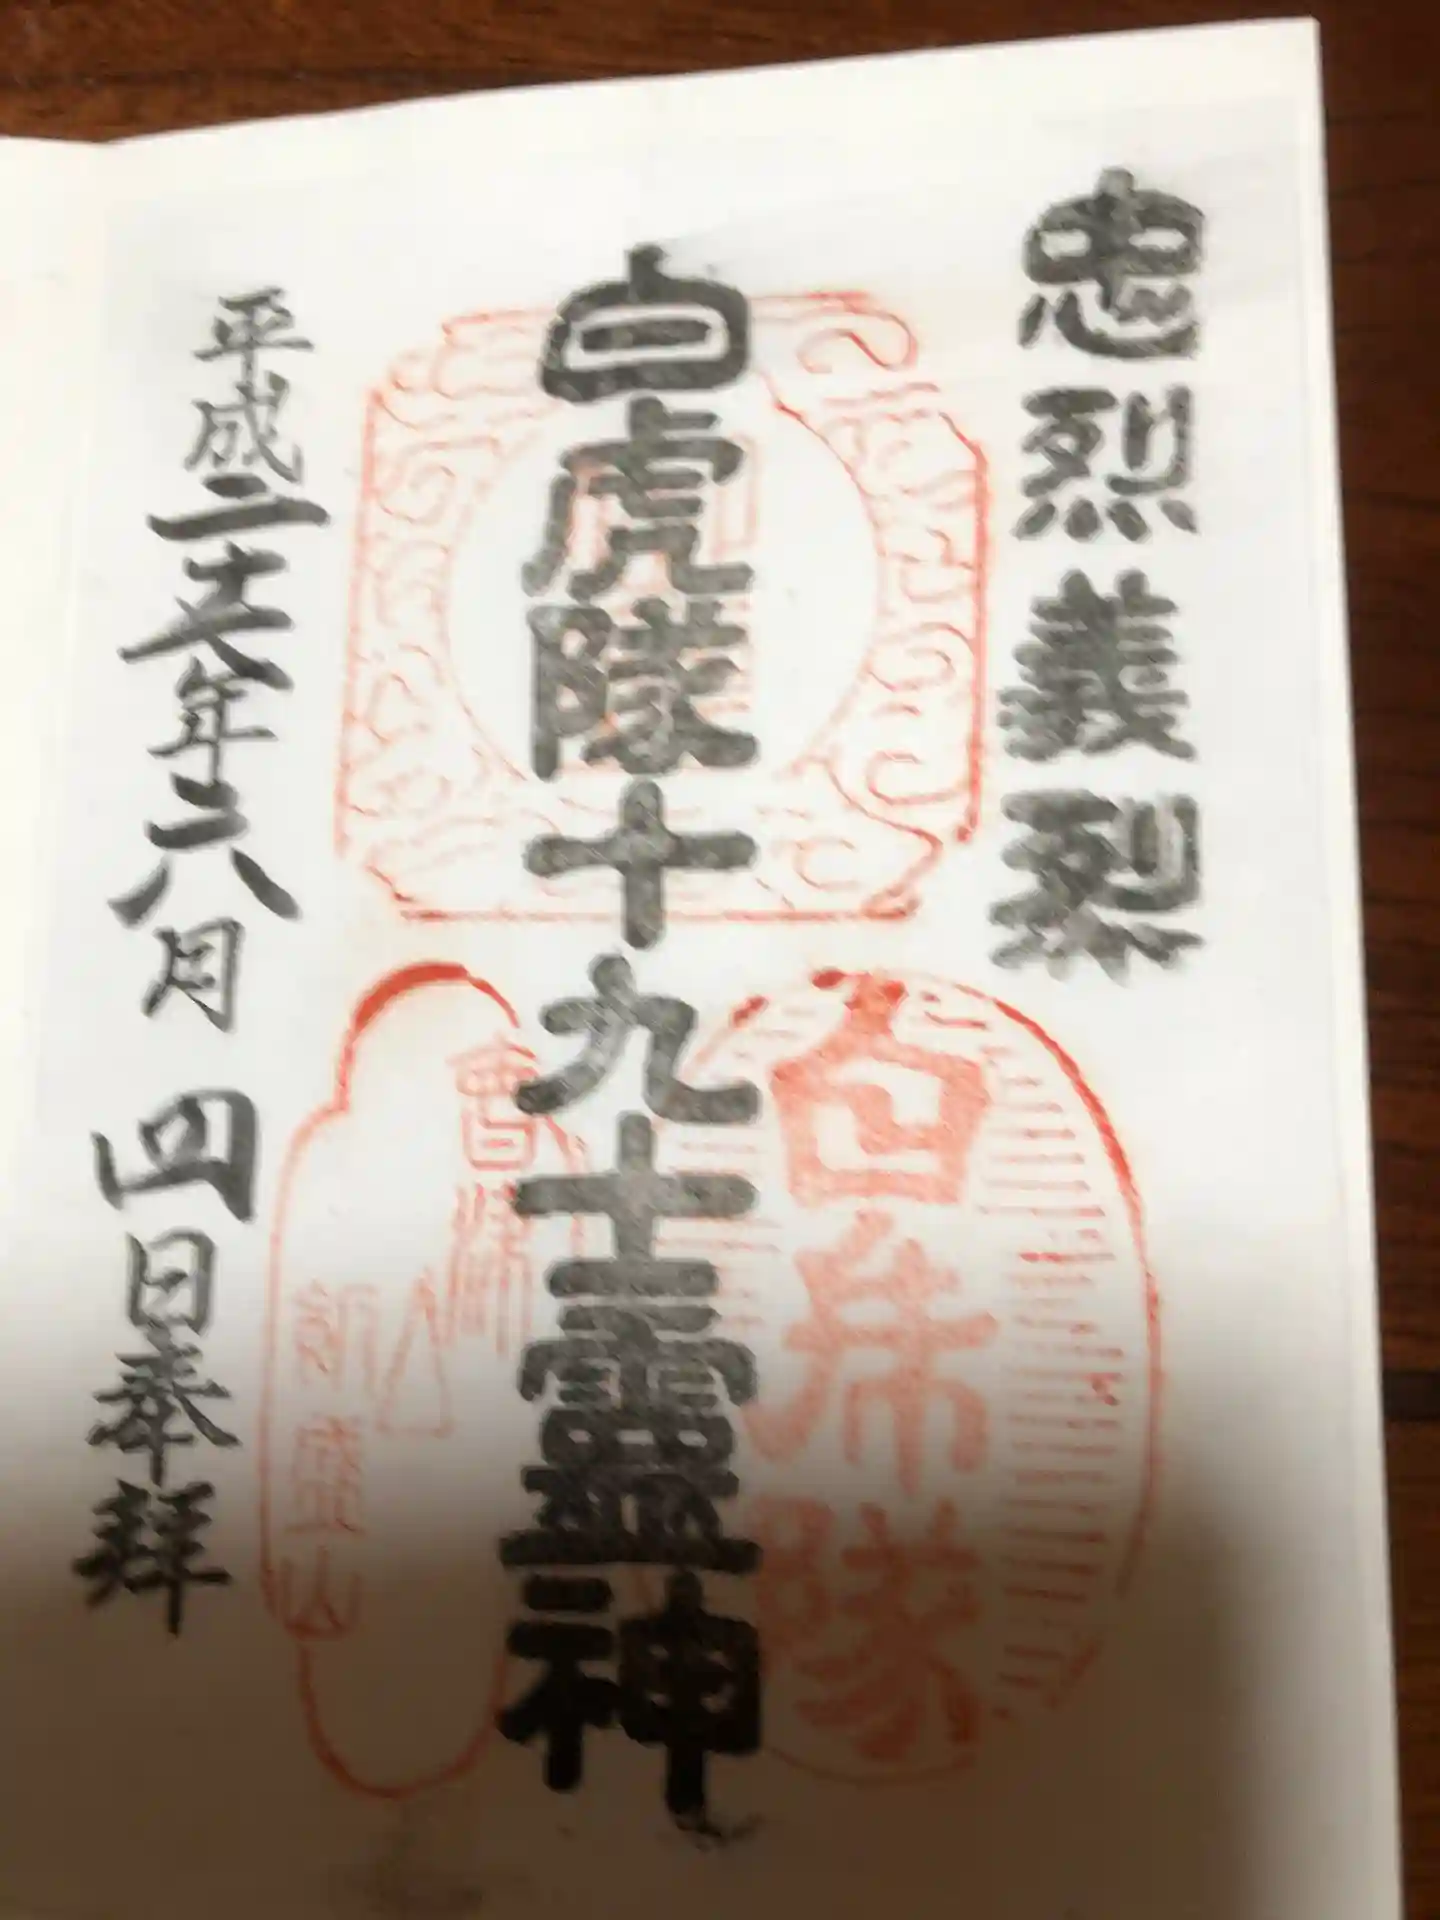 忠烈義烈
白虎隊十九士霊神
平成二十六年六月四日奉拝
白虎隊
會津
飯盛山